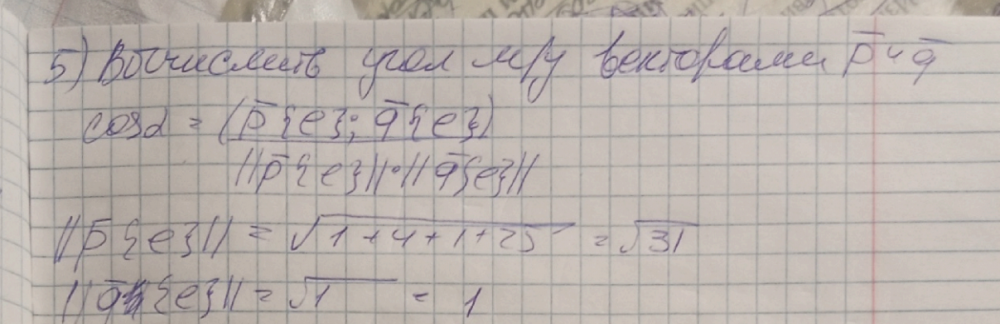 5) Вычислить угол м/у векторами p̄ и q̄
cosα = (p̄{e}; q̄{e})
||p̄{e}||·||q̄{e}||
||p̄{e}|| = √1+4+1+25 = √31
||q̄{e}|| = √1 = 1